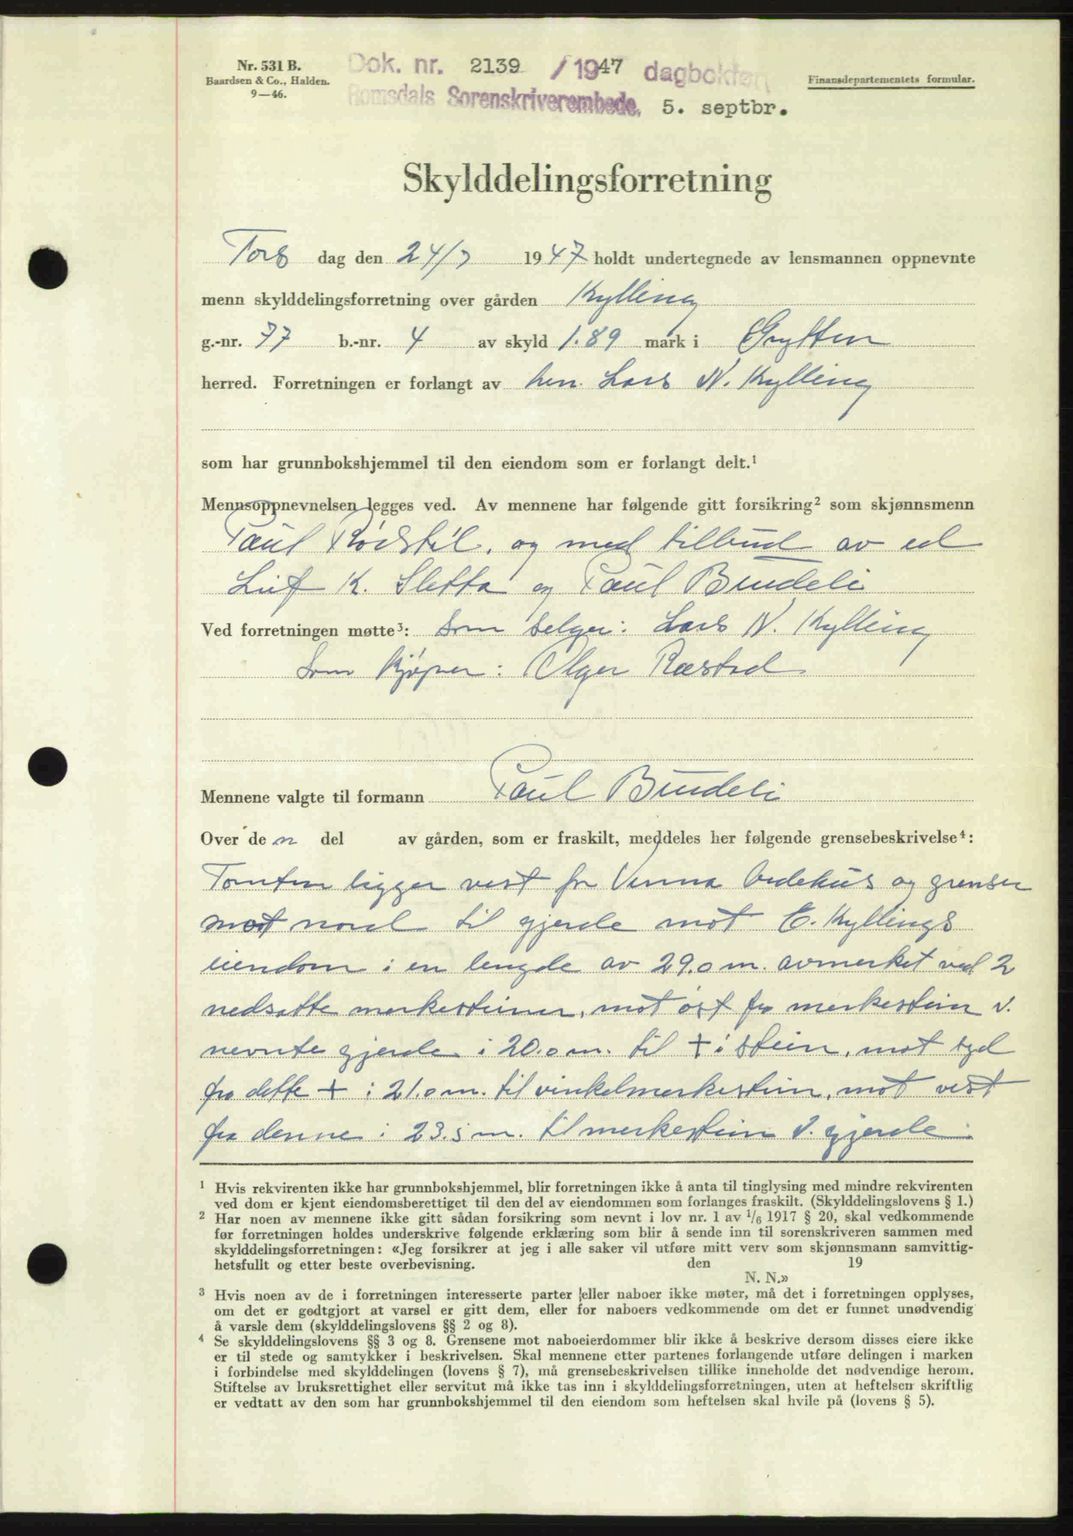 Nr. 531 B.
Baardsen & Co., Halden.
9—46.
Dok. nr. 2139 / 1947 dagbokført
Romsdals Sorenskriverembede, 5. septbr.
Finansdepartementets formular.
Skylddelingsforretning
Tors dag den 24/7 1947 holdt undertegnede av lensmannen oppnevnte
menn skylddelingsforretning over gården Kylling
g.-nr. 77 b.-nr. 4 av skyld 1.89 mark i Grytten
herred. Forretningen er forlangt av hrr. Lars N. Kylling
som har grunnbokshjemmel til den eiendom som er forlangt delt.¹
Mennsoppnevnelsen legges ved. Av mennene har følgende gitt forsikring² som skjønnsmenn
Paul Rødstøl, og med tilbud av ed
Leif K. Sletta og Paul Brudeli
Ved forretningen møtte³: Som selger: Lars N. Kylling
Som kjøper: Olger Ræstad
Mennene valgte til formann Paul Brudeli
Over den del av gården, som er fraskilt, meddeles her følgende grensebeskrivelse⁴:
Tomten ligger vest for Verma bedehus og grenser
mot nord til gjerde mot E. Kyllings
eiendom i en lengde av 29.0 m. avmerket ved 2
nedsatte merkesteiner, mot øst fra merkestein v.
nevnte gjerde i 20.0 m. til + i stein, mot syd
fra dette + i 21.0 m. til vinkelmerkestein, mot vest
fra denne i 23.5 m. til merkestein v. gjerde.
¹ Hvis rekvirenten ikke har grunnbokshjemmel, blir forretningen ikke å anta til tinglysing med mindre rekvirenten
ved dom er kjent eiendomsberettiget til den del av eiendommen som forlanges fraskilt. (Skylddelingslovens § 1.)
² Har noen av mennene ikke gitt sådan forsikring som nevnt i lov nr. 1 av 1/6 1917 § 20, skal vedkommende
før forretningen holdes underskrive følgende erklæring som blir å sende inn til sorenskriveren sammen med
skylddelingsforretningen: «Jeg forsikrer at jeg i alle saker vil utføre mitt verv som skjønnsmann samvittig-
hetsfullt og etter beste overbevisning. den 19
N. N.»
³ Hvis noen av de i forretningen interesserte parter eller naboer ikke møter, må det i forretningen opplyses,
om det er godtgjort at varsel er gitt dem, eller for naboers vedkommende om det er funnet unødvendig
å varsle dem (skylddelingslovens §§ 2 og 8).
⁴ Se skylddelingslovens §§ 3 og 8. Grensene mot naboeierdommer blir ikke å beskrive dersom disses eiere ikke
er til stede og samtykker i beskrivelsen. Skal mennene etter partenes forlangende utføre delingen i marken
i forbindelse med skylddelingen (lovens § 7), må grensebeskrivelsen tillike inneholde det nødvendige herom.
Stiftelse av bruksrettighet eller servitut må ikke tas inn i skylddelingsforretningen, uten at heftelsen skriftlig
er vedtatt av den som har grunnbokshjemmel til den eiendom som heftelsen skal hvile på (lovens § 5).